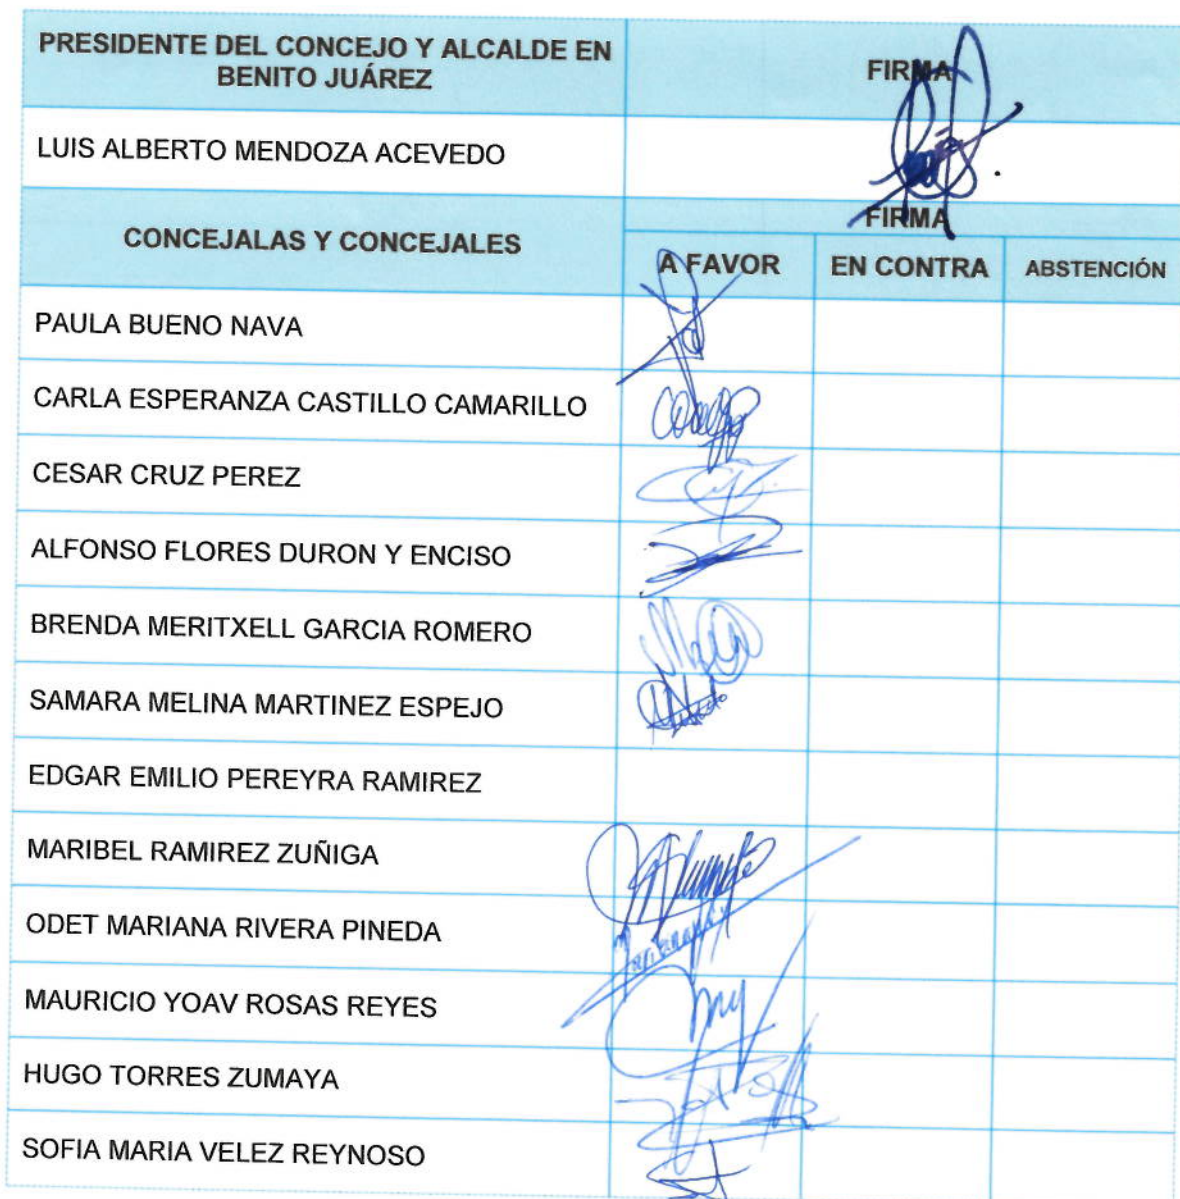 PRESIDENTE DEL CONCEJO Y ALCALDE EN
BENITO JUÁREZ
FIRMA
LUIS ALBERTO MENDOZA ACEVEDO
CONCEJALAS Y CONCEJALES
FIRMA
A FAVOR
EN CONTRA
ABSTENCIÓN
PAULA BUENO NAVA
CARLA ESPERANZA CASTILLO CAMARILLO
CESAR CRUZ PEREZ
ALFONSO FLORES DURON Y ENCISO
BRENDA MERITXELL GARCIA ROMERO
SAMARA MELINA MARTINEZ ESPEJO
EDGAR EMILIO PEREYRA RAMIREZ
MARIBEL RAMIREZ ZUÑIGA
ODET MARIANA RIVERA PINEDA
MAURICIO YOAV ROSAS REYES
HUGO TORRES ZUMAYA
SOFIA MARIA VELEZ REYNOSO